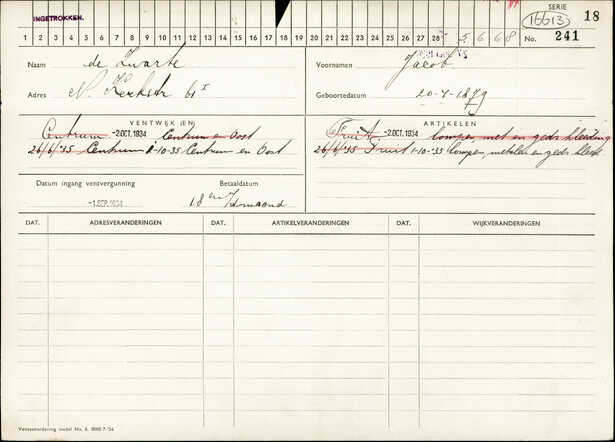 INGETROKKEN.
SERIE
16613 18
1 2 3 4 5 6 7 8 9 10 11 12 13 14 15 16 17 18 19 20 21 22 23 24 25 26 27 28 5 6 6 8 No. 241
Naam de Zwarte Voornamen Jacob
Adres N. Kerkstr 61 I Geboortedatum 20-7-1879
VENTWIJK EN ARTIKELEN
Centrum -2 OCT. 1934 Centrum en Oost Fruit -2 OCT. 1934 lompen, met en geds kleeding
26/6/'35 Centrum 1-10-35 Centrum en Oost 26/6/'35 Fruit 1-10-35 lompen, metalen en geds kleed.
Datum ingang ventvergunning Betaaldatum
-1 SEP. 1934 18 en
DAT. ADRESVERANDERINGEN DAT. ARTIKELVERANDERINGEN DAT. WIJKVERANDERINGEN
Ventverordening model No. 3. 8000 7-'34